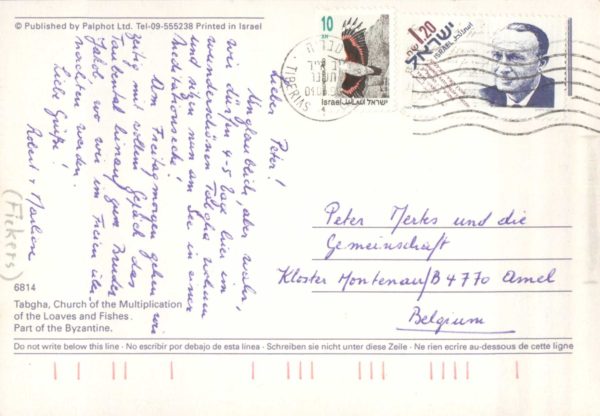 © Published by Palphot Ltd. Tel-09-555238 Printed in Israel
10
ישראל
Israel
1.20
ישראל
ISRAEL
TIBERIAS
Lieber Peter!
Unglaublich, aber wahr,
wir dürfen 4-5 Tage hier im
wunderschönen Tabgha wohnen
und sitzen nun am See in einer
Meditationsecke!
Am Freitagmorgen gehen wir
zeitig mit vollem Gepäck das
Taubental hinauf zum Bruder
Jakob, wo wir im Freien über-
nachten werden.
Liebe Grüße!
Robert + Marlene
(Fickers)
Peter Merks und die
Gemeinschaft
Kloster Montenau/B 4770 Amel
Belgium
6814
Tabgha, Church of the Multiplication
of the Loaves and Fishes.
Part of the Byzantine.
Do not write below this line · No escribir por debajo de esta línea · Schreiben sie nicht unter diese Zeile · Ne rien ecrire au-dessous de cette ligne